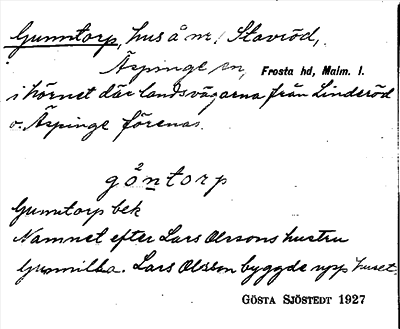 Gunntorp, hus å nr. Stavröd,
Äspinge sn, Frosta hd, Malm. l.
i hörnet där landsvägarna från Linderöd
o. Äspinge förenas.
gö²ntorp
Gunntorp bek
Namnet efter Lars Olssons hustru
Gunnilla. Lars Olsson byggde upp huset.
GÖSTA SJÖSTEDT 1927